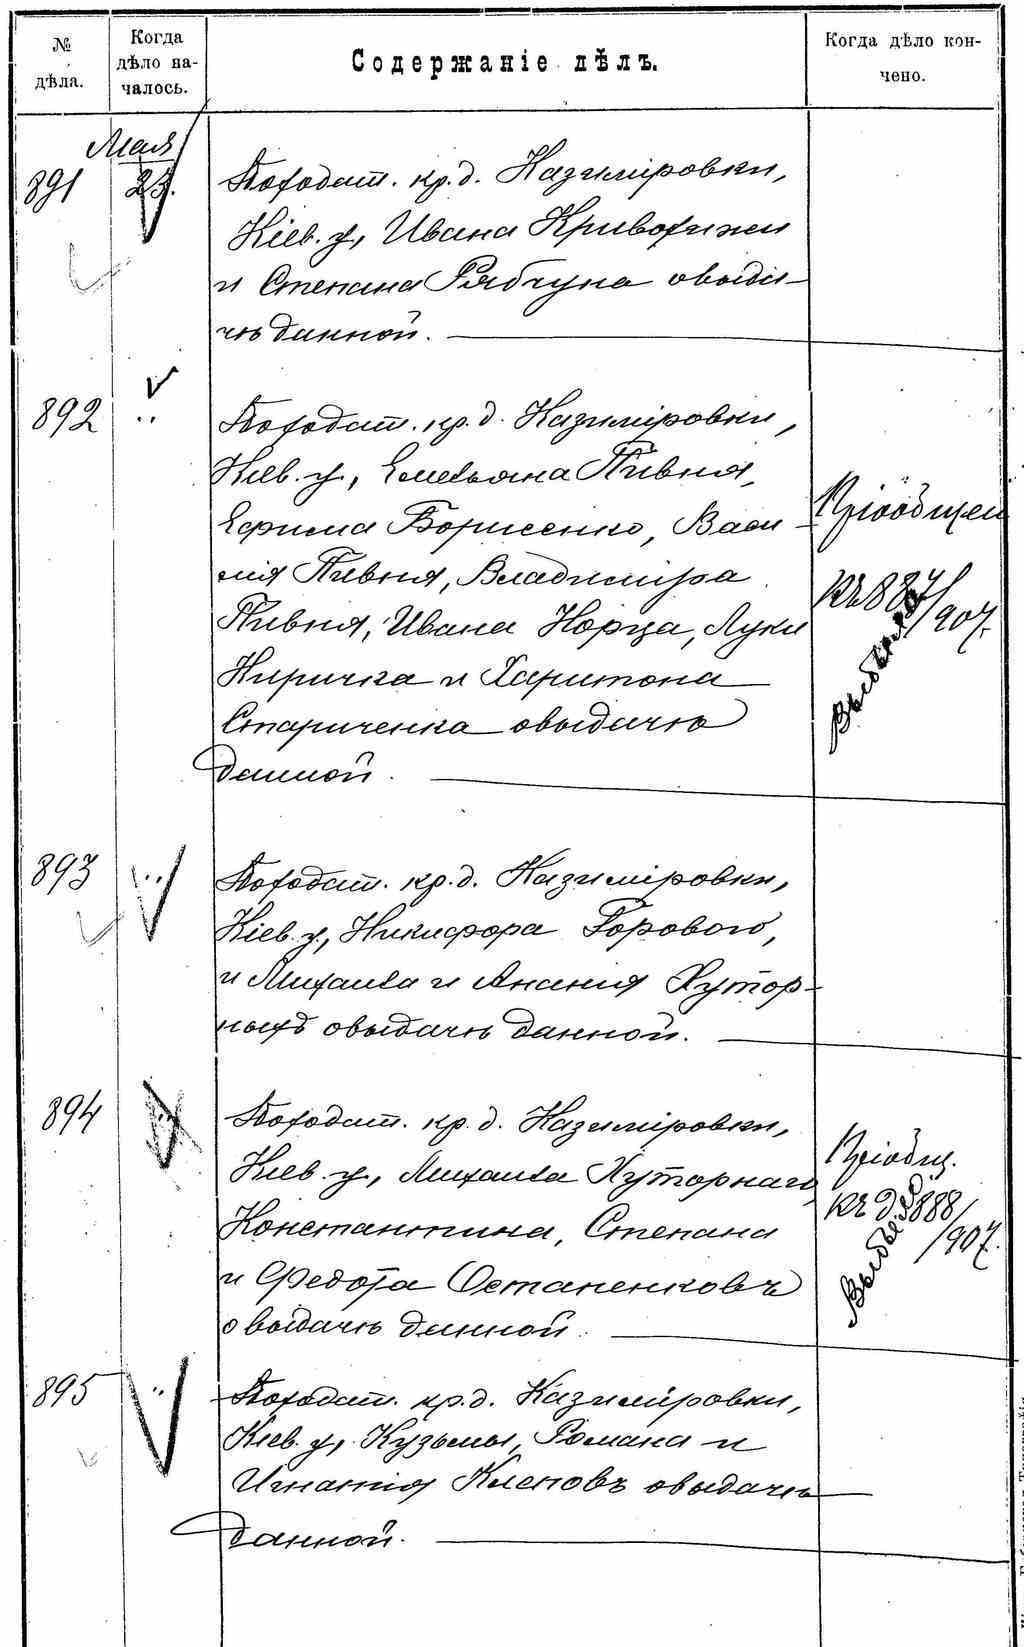 №
дѣла.
Когда
дѣло на-
чалось.
Содержаніе дѣлъ.
Когда дѣло кон-
чено.
Мая
891
23.
По ходат. кр. д. Казиміровки,
Кіев. у., Ивана Кривохижи
и Степана Рябчуна о выда-
чѣ данной.
892
По ходат. кр. д. Казиміровки,
Кіев. у., Емельяна Пивня,
Ефима Борисенко, Васи-
лія Пивня, Владиміра
Пивня, Ивана Норца, Луки
Киричка и Харитона
Стариченка о выдачѣ
данной.
Пріобщен
къ 887/907.
Выбыл
893
По ходат. кр. д. Казиміровки,
Кіев. у., Никифора Горового,
и Михаила и Анания Хутор-
ныхъ о выдачѣ данной.
894
По ходат. кр. д. Казиміровки,
Кіев. у., Михаила Хуторнаго
Константина, Степана
и Федота Остапенковъ
о выдачѣ данной.
Пріобщ.
къ д. 888/907.
895
По ходат. кр. д. Казиміровки,
Кіев. у., Кузьмы, Романа и
Игнатія Клеповъ о выдачѣ
данной.